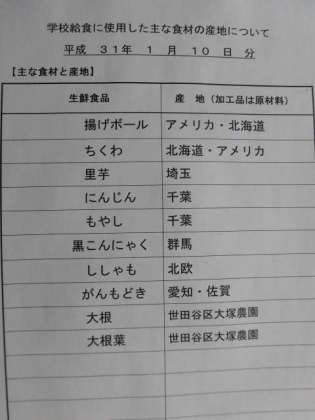 学校給食に使用した主な食材の産地について
平成 31年 1 月 10 日 分
【主な食材と産地】
生鮮食品 産 地（加工品は原材料）
揚げボール アメリカ・北海道
ちくわ 北海道・アメリカ
里芋 埼玉
にんじん 千葉
もやし 千葉
黒こんにゃく 群馬
ししゃも 北欧
がんもどき 愛知・佐賀
大根 世田谷区大塚農園
大根葉 世田谷区大塚農園